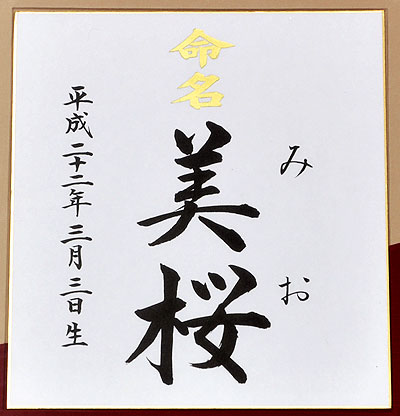 命名
美桜
みお
平成二十二年三月三日生